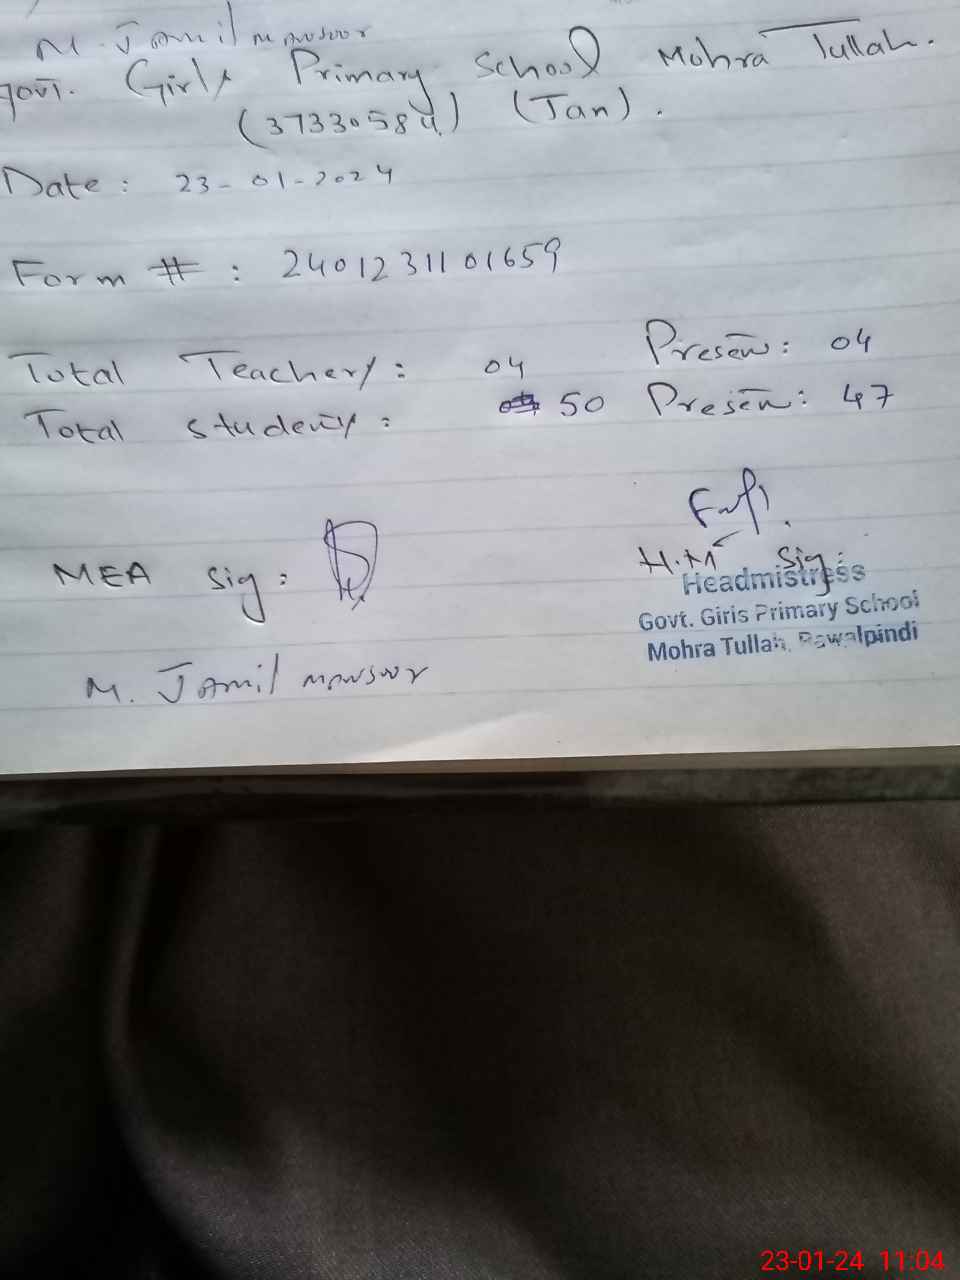 M. Jamil Mansoor
Govt. Girls Primary School Mohra Tullah.
(37330584) (Jan).
Date: 23-01-2024
Form #: 2401231101659
Total Teachers: 04 Present: 04
Total students: 50 Present: 47
MEA Sig:
H.M Sig:
Headmistress
Govt. Girls Primary School
Mohra Tullah, Rawalpindi
M. Jamil Mansoor
23-01-24 11:04